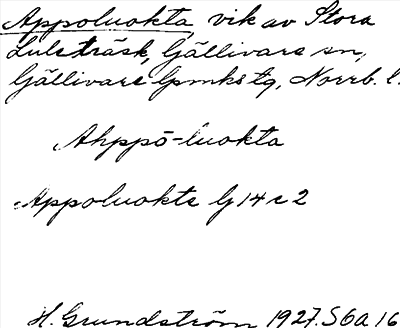 Appoluokta, vik av Stora
Luleträsk, Gällivare sn,
Gällivare lpmks tg, Norrb. l.
Ahppō-luokta
Appoluokta lj 14 c 2
H. Grundström 1927. S6a 16